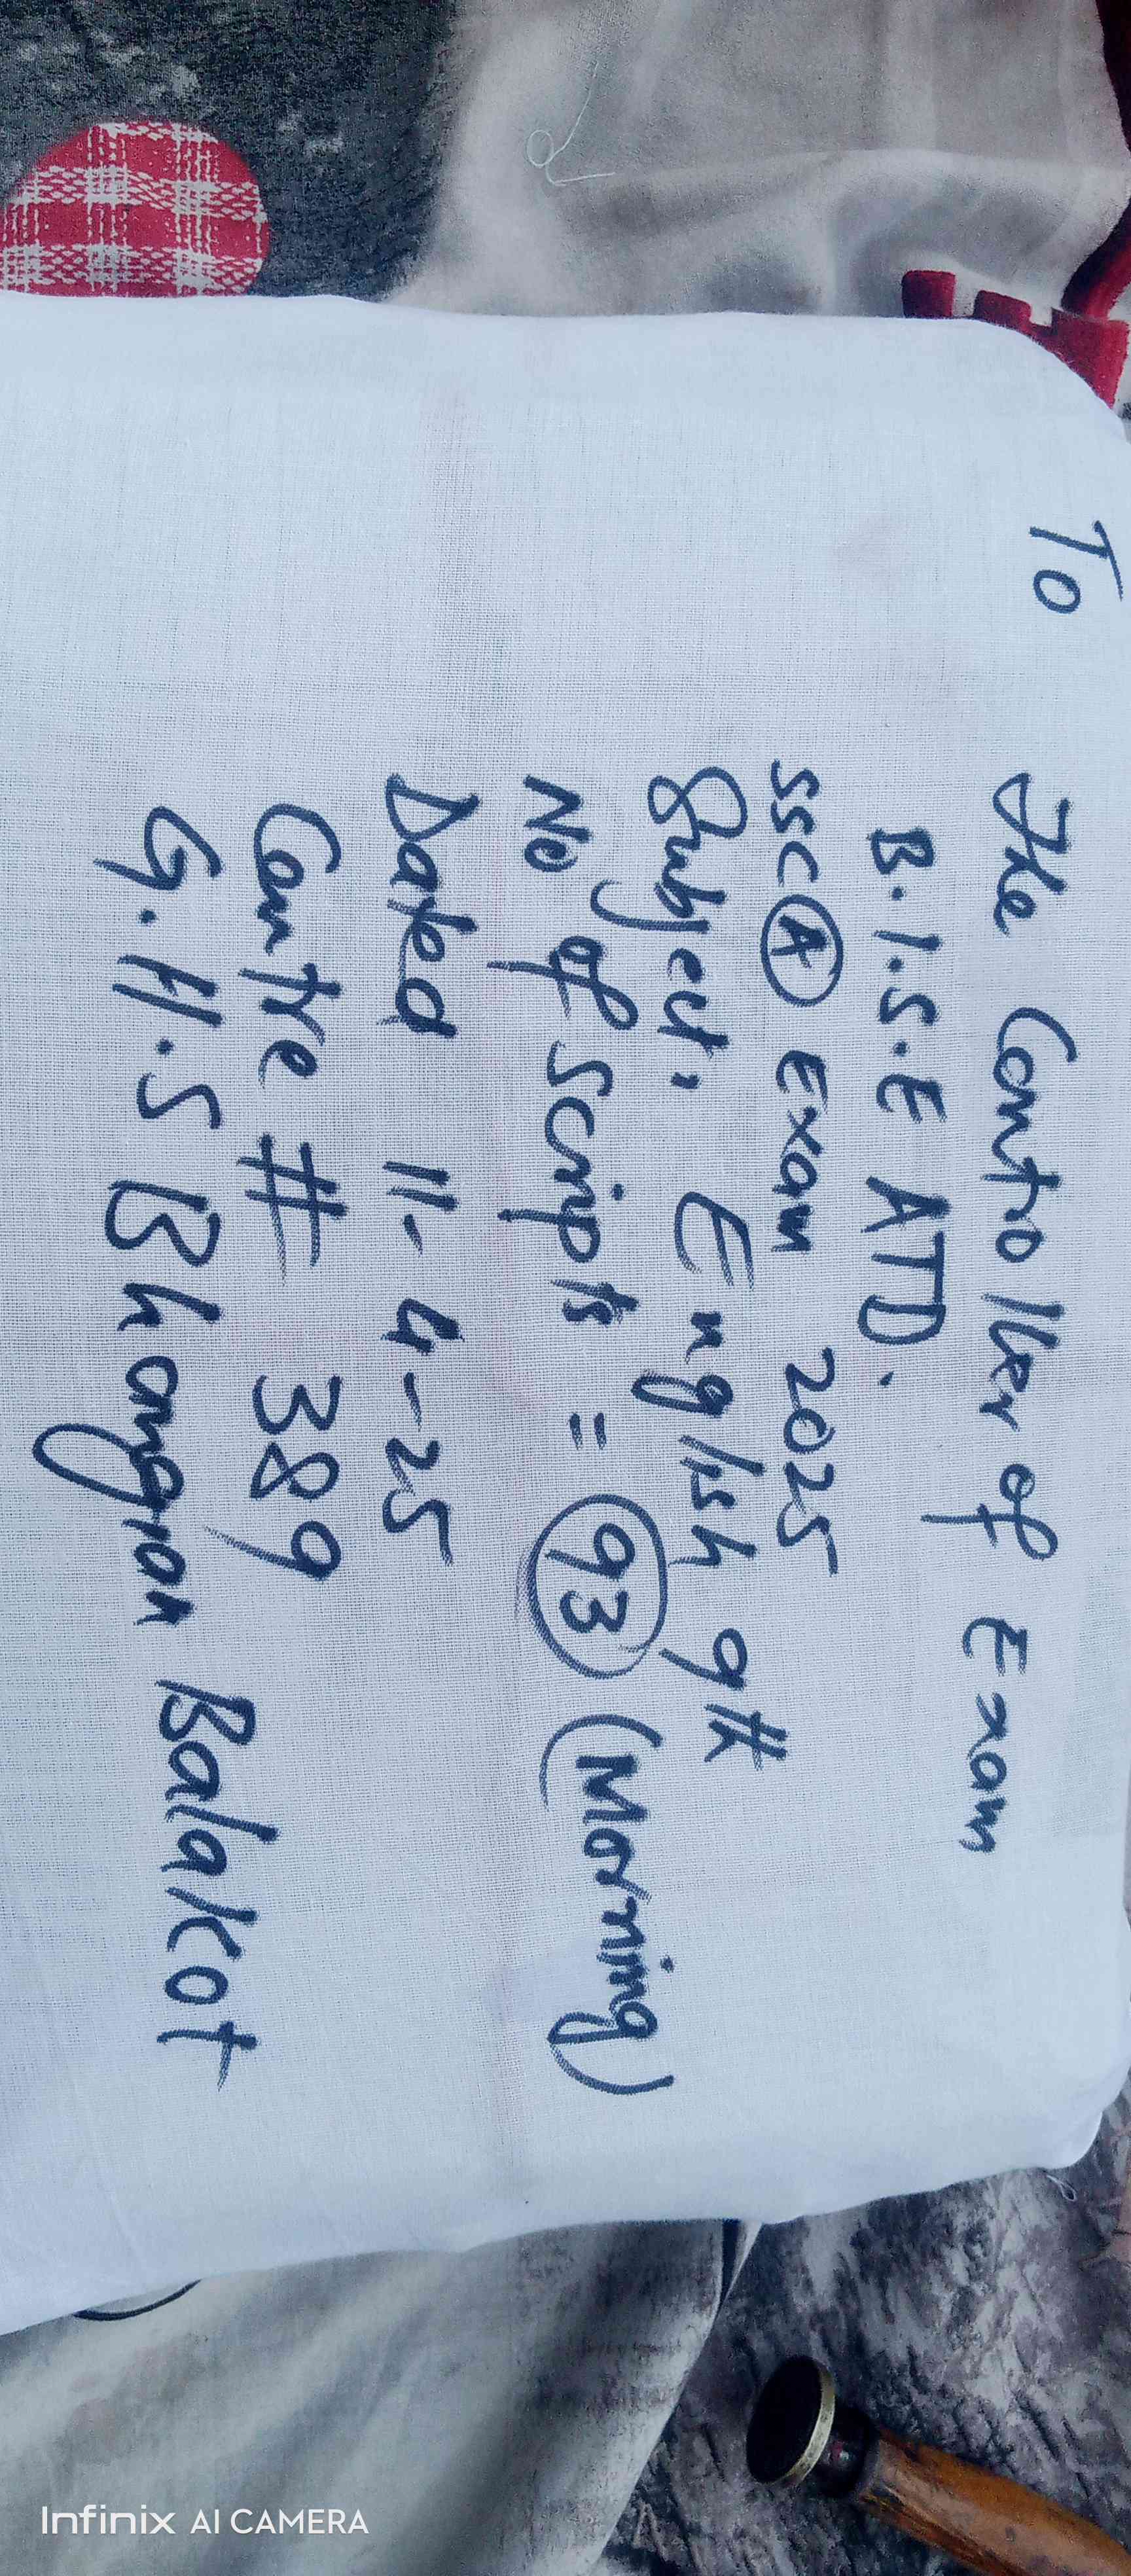 To
The Controller of Exam
B.I.S.E ATD.
SSC (A) Exam 2025
Subject, English 9th
No of Scripts = 93 (Morning)
Dated 11-4-25
Centre # 389
G.H.S Bhangian Balakot
Infinix AI CAMERA